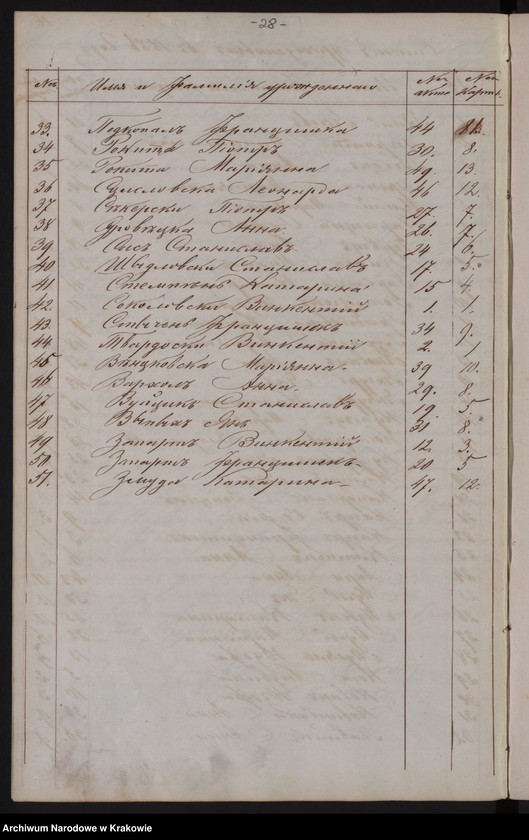 -28-
№ Имя и Фамилія урожденнаго № акта № карт.
33. Подкопалъ Францишка 44
34 Рокита Піотръ 30. 8.
35 Рокита Маріянна 49. 13.
36 Сцисловска Леонарда 46 12.
37 Піотръ 27. 7.
38 Анна 26. 7.
39 Сысъ Станиславъ 24 6.
40 Шыдловски Станиславъ 17. 5.
41 Стемпень Катарина 15 4.
42. Соколовски Винкентій 1. 1.
43. Стычень Францишекъ 34 9.
44. Твардоски Винкентій 2. 1
45 Венцковска Маріянна. 39 10.
46 Вархолъ Анна. 29. 8.
47 Вуйцикъ Станиславъ 19. 5.
48 Выпыхъ Янъ 31 8.
49 Запартъ Винкентій 12. 3.
50. Запартъ Францишекъ 20 5
51. Змуда Катарина 47. 12.
Archiwum Narodowe w Krakowie